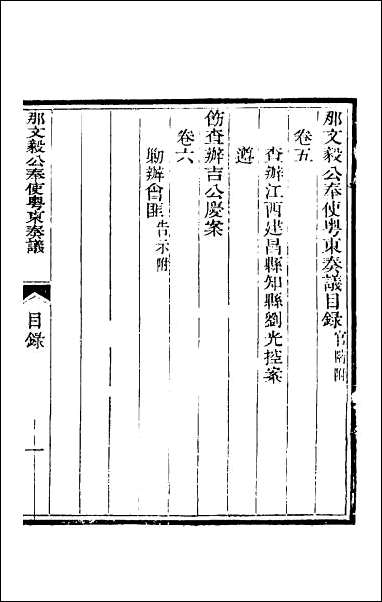 那文毅公奉使粵東奏議目錄官階附
卷五
查辦江西建昌縣知縣劉光控案
遵
飭查辦吉公慶案
卷六
勦辦會匪告示附
那文毅公奉使粵東奏議
目錄
一